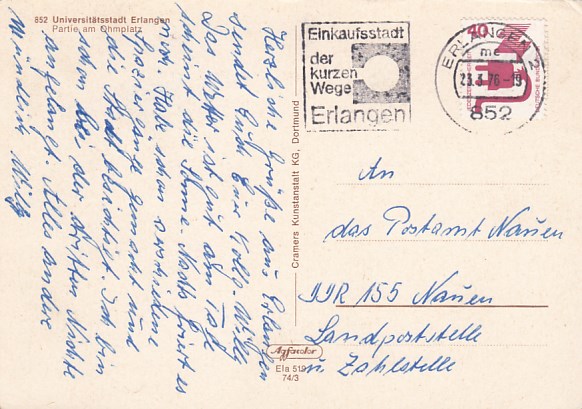 852 Universitätsstadt Erlangen
Partie am Ohmplatz
Herzliche Grüße aus Erlangen
sendet Euch Eur Kolb. Willy
Das Wetter ist gut am Tage
scheint die Sonne. Nachts friert es
noch. Habe schon verschiedene
Spaziergänge gemacht und
die Stadt besichtigt. Ich bin
bei der dritten Nichte
angelangt. Alles andere
mündlich Willy
Cramers Kunstanstalt KG, Dortmund
Agfacolor
Ela 519
74/3
Einkaufsstadt
der
kurzen
Wege
Erlangen
ERLANGEN 2
mc
23.3.76-19
852
40
DEUTSCHE BUNDESPOST
An
das Postamt Nauen
DDR 155 Nauen
Landpoststelle
u Zahlstelle